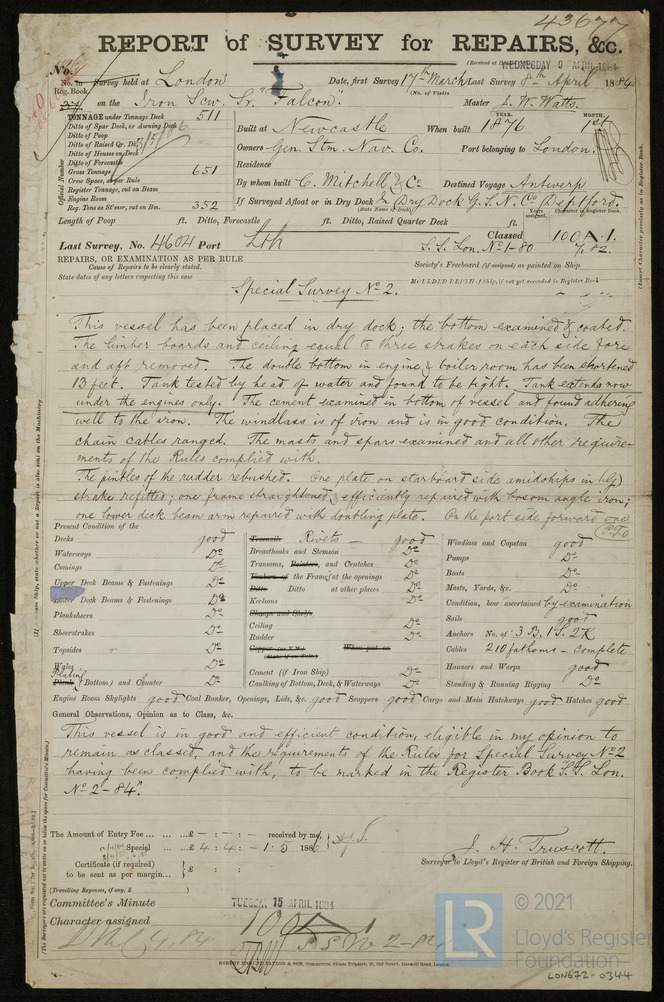 43677
REPORT of SURVEY for REPAIRS, &c.
(Received at
WEDNESDAY 9 APRIL 1884
No.
No. in Survey held at London Date, first Survey 17th March Last Survey 8th April 1884
Reg. Book
(No. of Visits
on the Iron Scw. Sr. "Falcon". Master J. W. Watts.
TONNAGE under Tonnage Deck 511
Ditto of Spar Deck, or Awning Deck
Ditto of Poop
Ditto of Raised Qr. Dk
Ditto of Houses on Deck
Ditto of Forecastle
Gross Tonnage 651
Crew Space, as per Rule
Register Tonnage, cut on Beam
Engine Room
Reg. Tons as St'mer, cut on Bm. 352
Official Number
YEAR. MONTH.
Built at Newcastle When built 1876 1st
Owners Gen. Stm. Nav. Co. Port belonging to London.
Residence
By whom built C. Mitchell & Co Destined Voyage Antwerp
If Surveyed Afloat or in Dry Dock In Dry Dock G.S.N. Co Deptford.
(State Name of Dock.)
Years assigned. Character in Register Book.
Length of Poop ft. Ditto, Forecastle ft. Ditto, Raised Quarter Deck ft.
Last Survey, No. 4604 Port Loh
Classed 100 A. 1.
S.S. Lon. No 1-80 7.82.
REPAIRS, OR EXAMINATION AS PER RULE
Cause of Repairs to be clearly stated.
State dates of any letters respecting this case
Society's Freeboard (if assigned) as painted on Ship
MOULDED DEPTH if Ship, if not yet recorded in Register Book
Special Survey No 2.
This vessel has been placed in dry dock; the bottom examined & coated.
The limber boards and ceiling equal to three strakes on each side fore
and aft removed. The double bottom in engine & boiler room has been shortened
13 feet. Tank tested by head of water and found to be tight. Tank extends now
under the engines only. The cement examined in bottom of vessel and found adhering
well to the iron. The windlass is of iron and is in good condition. The
chain cables ranged. The masts and spars examined and all other require-
ments of the Rules complied with.
The pintles of the rudder rebushed. One plate on starboard side amidships in
strake refitted; one frame straightened & efficiently repaired with bosom angle iron;
one lower deck beam arm repaired with doubling plate. On the port side forward one
P.T.O
Present Condition of the
Decks good
Waterways Do
Comings Do
Upper Deck Beams & Fastenings Do
Lower Deck Beams & Fastenings Do
Planksheers Do
Sheerstrakes Do
Topsides Do
Wales Do
Plating
Plank (Bottom) and Counter Do
Treenails Rivets — good
Breasthooks and Stemson Do
Transoms, Pointers, and Crutches Do
Timbers of the Frame at the openings Do
Ditto Ditto at other places Do
Keelsons Do
Clamps and Shelfs
Ceiling Do
Rudder Do
Copper (or Y.M.) When put on
(State if on Felt)
Cement (if Iron Ship) Do
Caulking of Bottom, Deck, & Waterways Do
Windlass and Capstan good
Pumps Do
Boats Do
Masts, Yards, &c. Do
Condition, how ascertained by examination
Sails good
Anchors No. of 3 B. 1 S. 2 K
Cables 210 fathoms - complete
Hawsers and Warps good
Standing & Running Rigging Do
Engine Room Skylights good Coal Bunker, Openings, Lids, &c. good Scuppers good Cargo and Main Hatchways good Hatches good
General Observations, Opinion as to Class, &c.
This vessel is in good and efficient condition, eligible in my opinion to
remain as classed, and the requirements of the Rules for Special Survey No 2
having been complied with, to be marked in the Register Book S.S. Lon.
No 2 - 84."
The Amount of Entry Fee ... ... £ - : - : - received by me,
Special ... £ 4 : 4 : - 1.5 188
Certificate (if required)
to be sent as per margin... £ : :
(Travelling Expenses, if any, £ )
J. H. Truscott.
Surveyor to Lloyd's Register of British and Foreign Shipping.
Committee's Minute TUESDAY 15 APRIL 1884
Character assigned 100 A 1
S S No 2-84
ROBERT EDMUND TAYLOR & SON, Commercial Steam Printers, 19, Old Street, Goswell Road, London.
LR
© 2021
Lloyd's Register
Foundation
LON672-0344